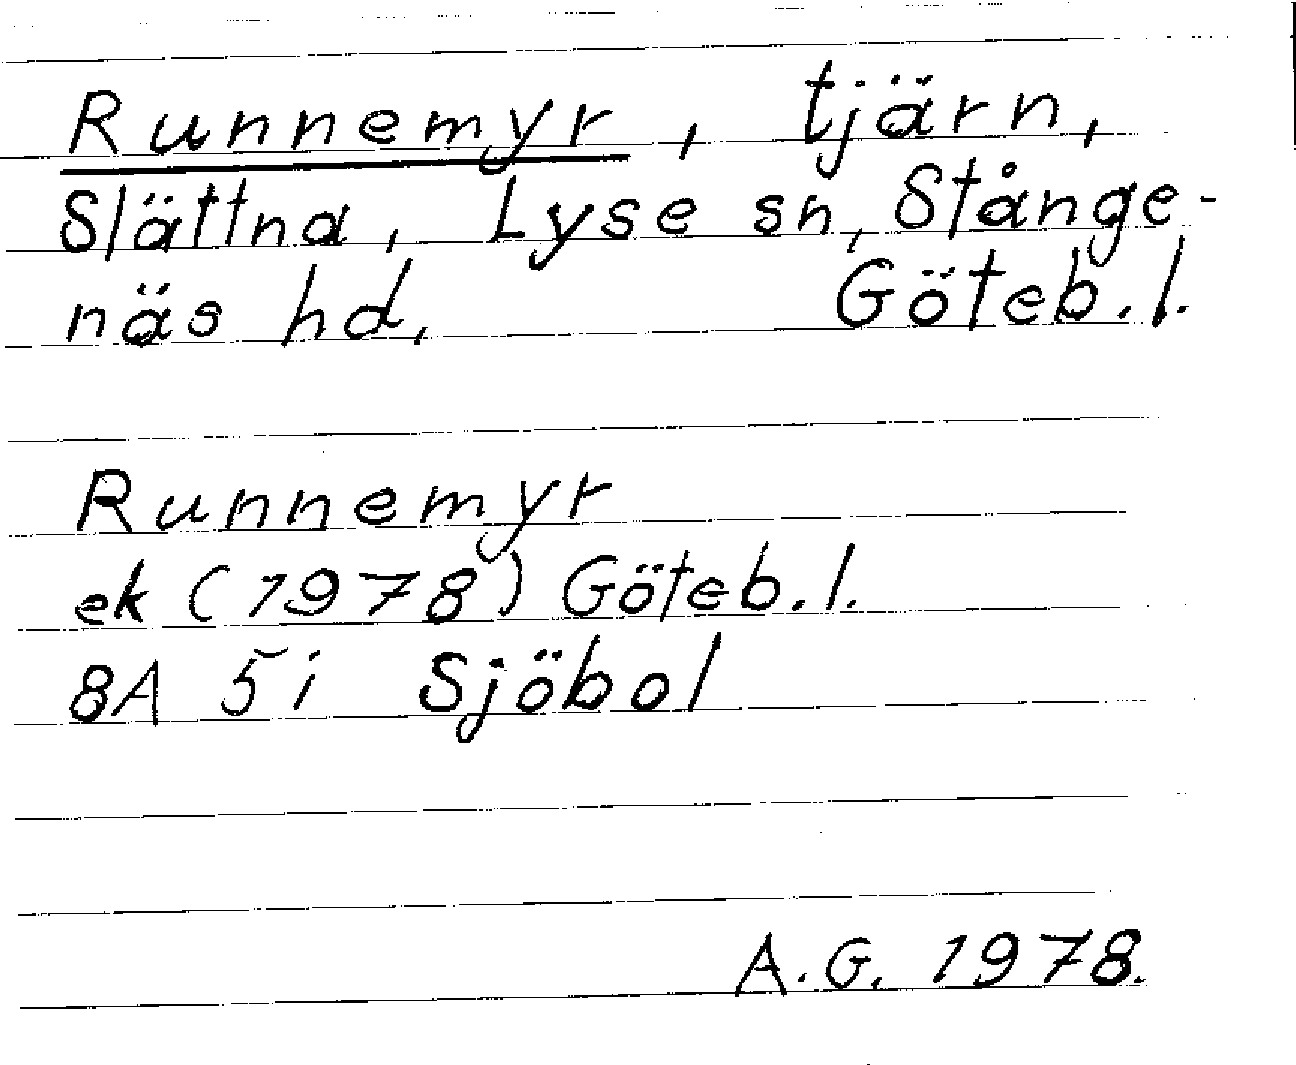 Runnemyr, tjärn,
Slättna, Lyse sn, Stånge-
näs hd, Göteb. l.
Runnemyr
ek (1978) Göteb. l.
8A 5i Sjöbol
A. G. 1978.